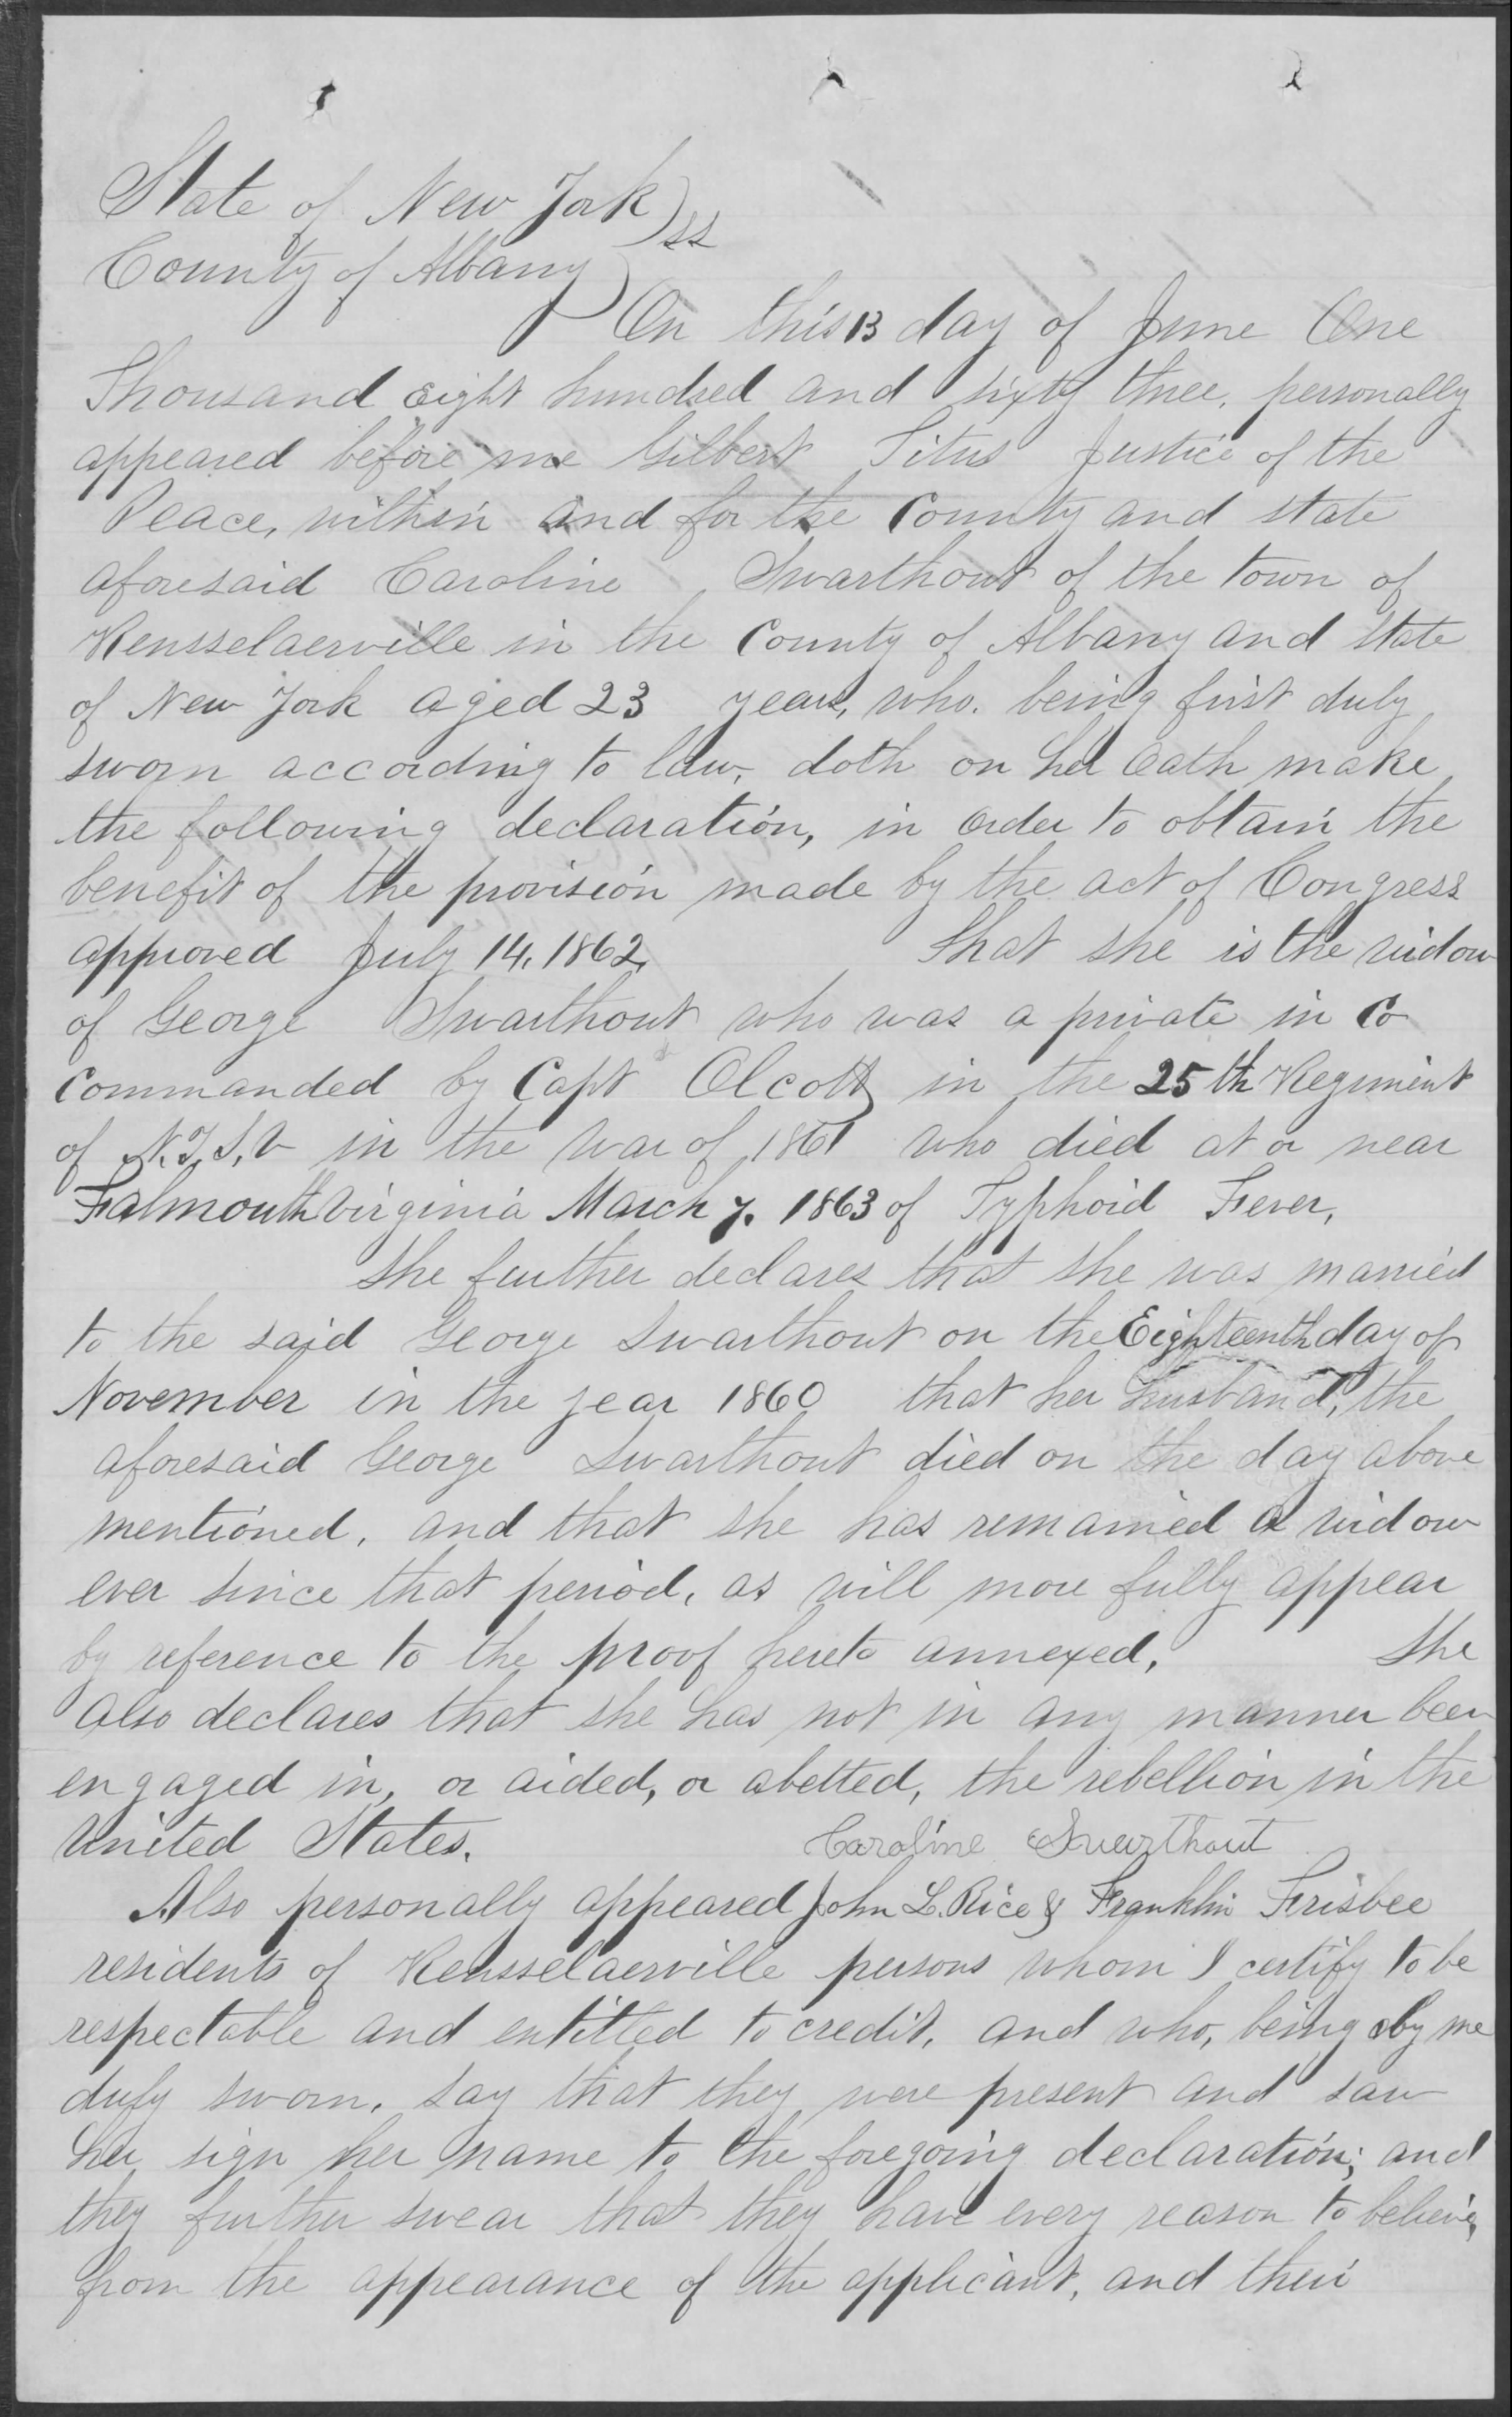 State of New York ) ss
County of Albany )
On this 13 day of June One
Thousand Eight hundred and sixty three, personally
appeared before me Gilbert Titus Justice of the
Peace, within and for the County and state
aforesaid Caroline Swarthout of the town of
Rensselaerville in the County of Albany and State
of New York aged 23 years, who. being first duly
sworn according to law, doth on her Oath make
the following declaration, in order to obtain the
benefit of the provision made by the act of Congress
approved July 14, 1862, That she is the widow
of George Swarthout who was a private in Co
Commanded by Capt Olcott in the 25th Regiment
of N.Y.S.V in the War of 1861 who died at or near
Falmouth Virginia March 7. 1863 of Typhoid Fever,
She further declares that she was married
to the said George Swarthout on the Eighteenth day of
November in the year 1860 that her husband, the
aforesaid George Swarthout died on the day above
mentioned, and that she has remained a widow
ever since that period, as will more fully appear
by reference to the proof hereto annexed, She
also declares that she has not in any manner been
engaged in, or aided, or abetted, the rebellion in the
United States. Caroline Swarthout
Also personally appeared John L. Rice & Franklin Frisbee
residents of Rensselaerville persons whom I certify to be
respectable and entitled to credit, and who, being by me
duly sworn, say that they were present and saw
her sign her name to the foregoing declaration; and
they further swear that they have every reason to believe,
from the appearance of the applicant, and their